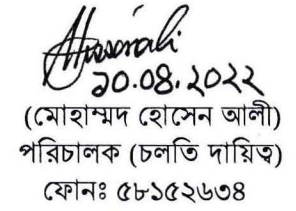 ১০.০৪.২০২২
(মোহাম্মদ হোসেন আলী)
পরিচালক (চলতি দায়িত্ব)
ফোনঃ ৫৮১৫২৬৩৪